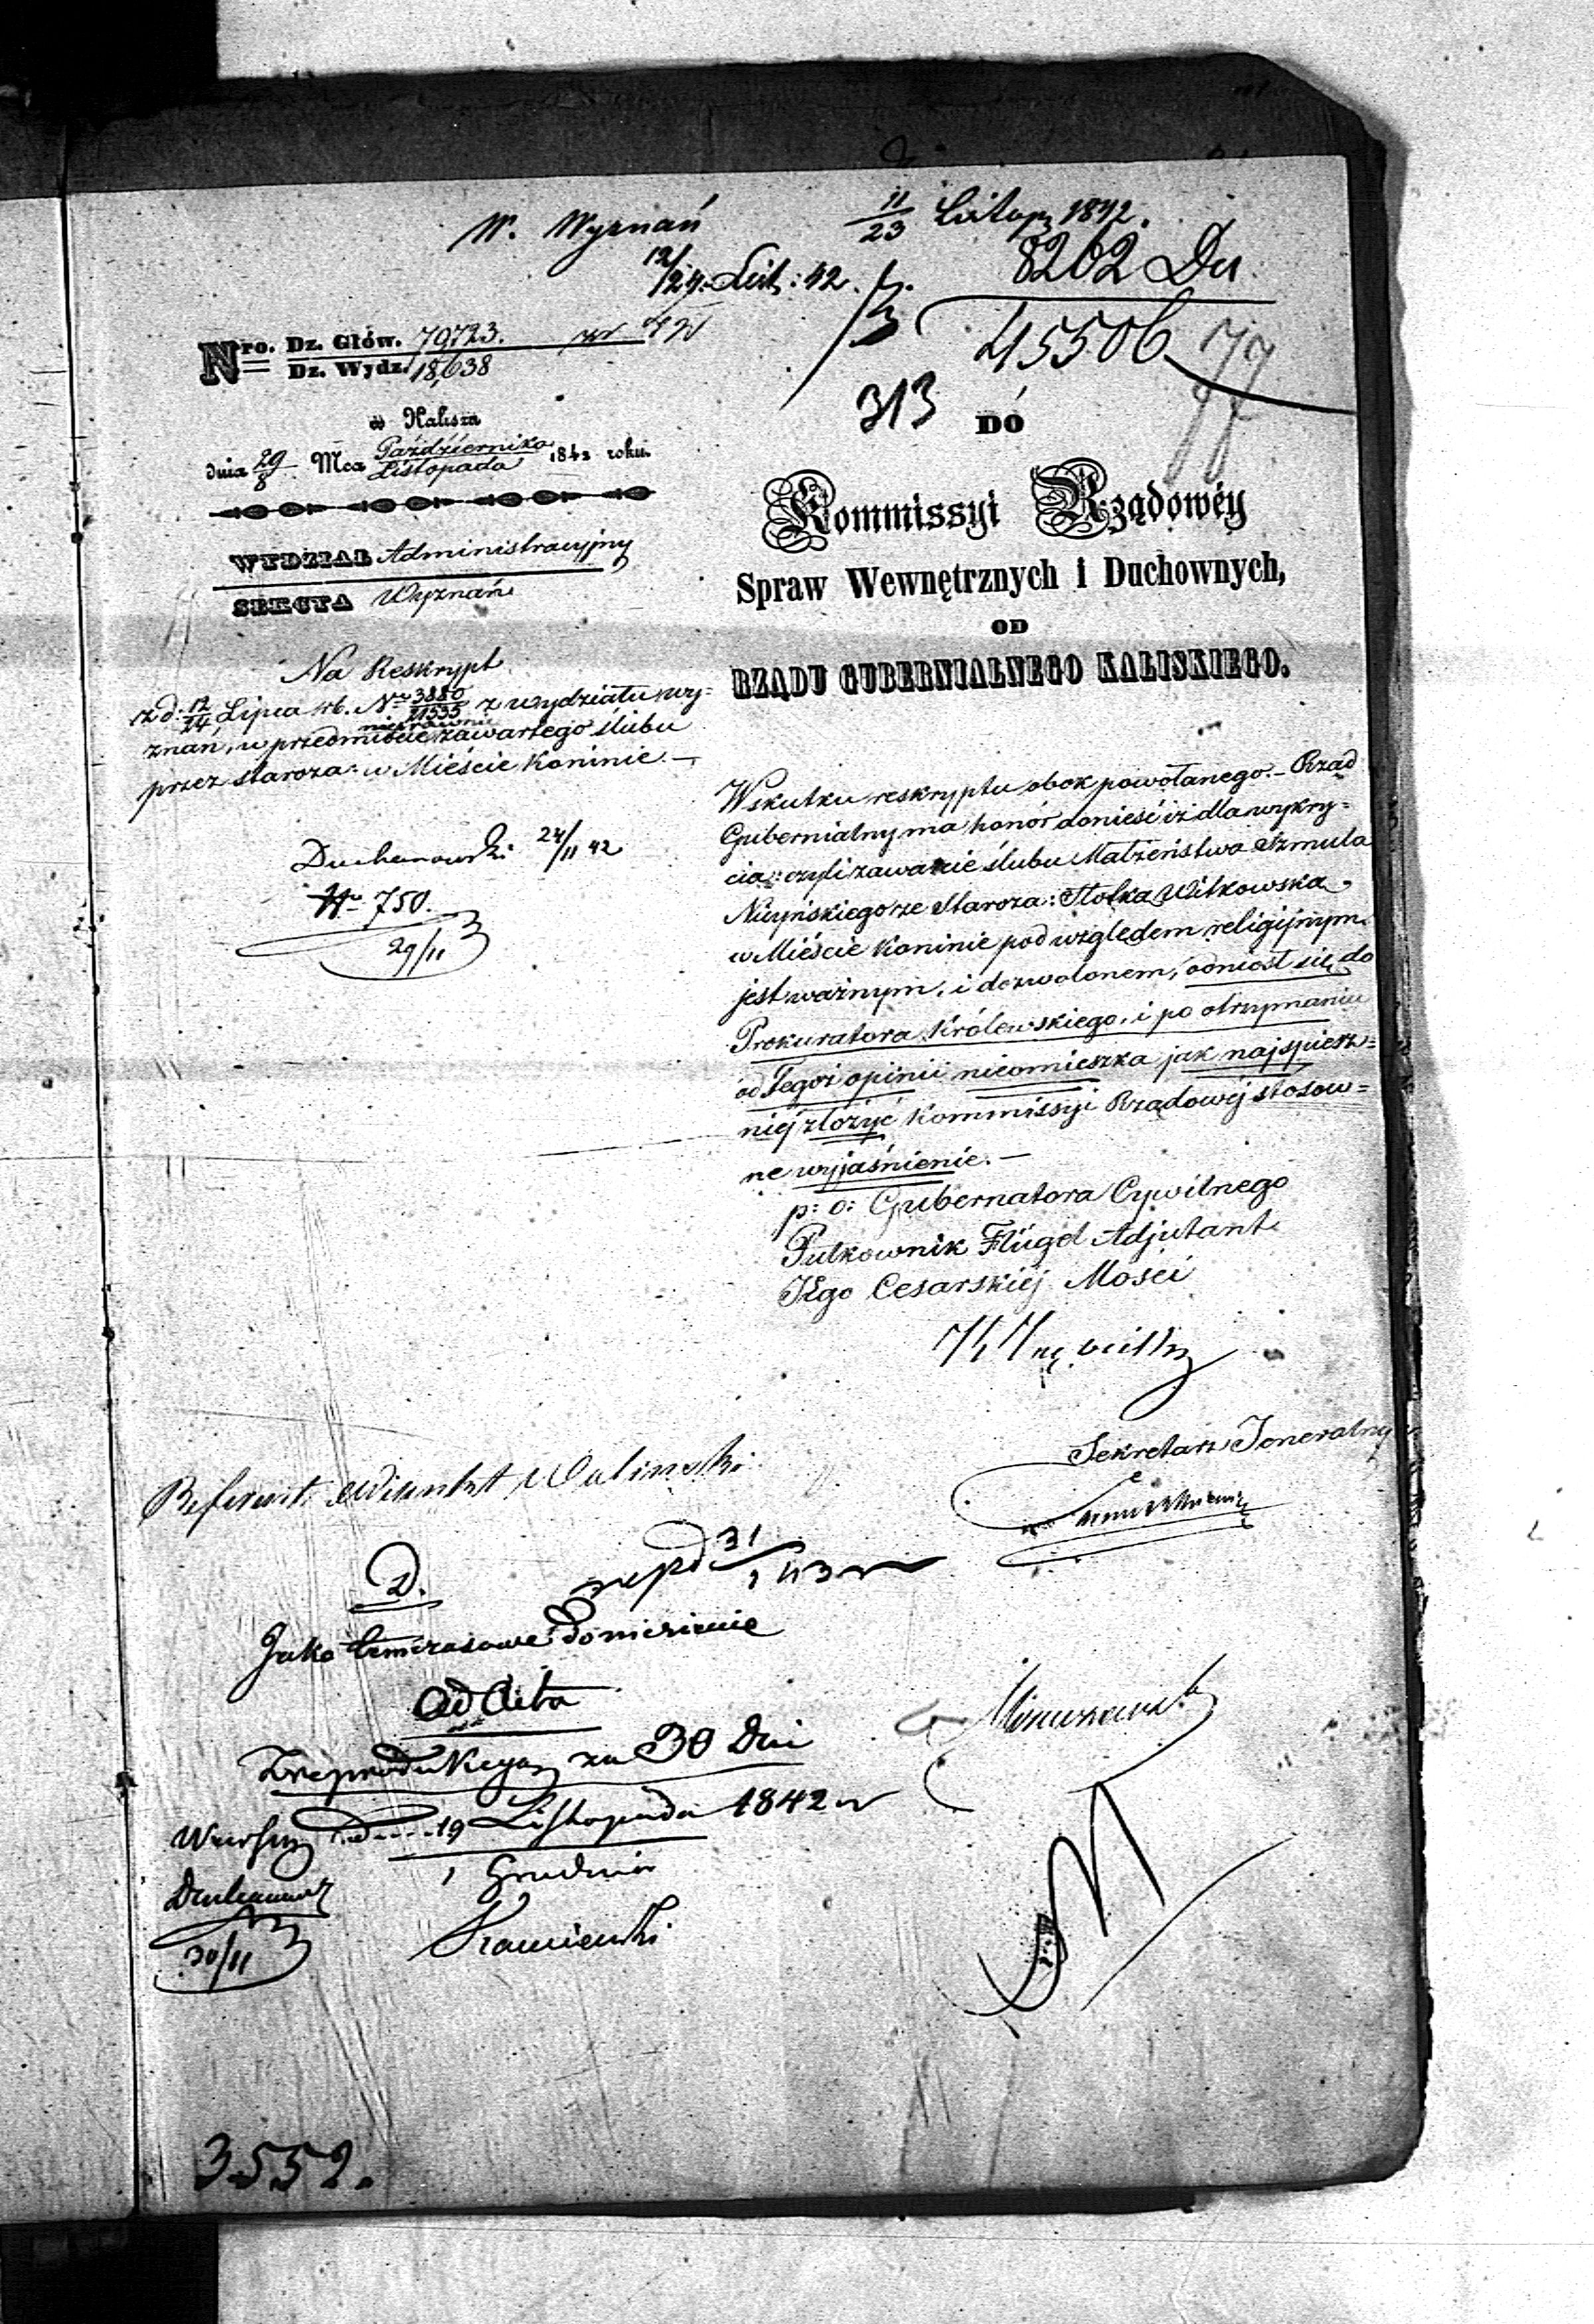 W. Wyznań
11/23 Listop. 1842.
12/24 List: 42.
8262 Du
45506
313
Nro. Dz. Głów. 79723.
Dz. Wydz. 18,638
w Kaliszu
dnia 29/8 Mca Października/Listopada 1842 roku.
WYDZIAŁ Administracyjny
SEKCYA Wyznań
DO
Kommissyi Rządowéy
Spraw Wewnętrznych i Duchownych,
OD
RZĄDU GUBERNIALNEGO KALISKIEGO.
Na Reskrypt
z d: 12/24 Lipca rb. No 3880/21535 z wydziału wy=
znań, w przedmiocie nieprawnie zawartego ślubu
przez staroza: w Mieście Koninie. —
Duchanowski 24/11 42
No 750.
29/11
Wskutku reskryptu obok powołanego. – Rząd
Gubernialny ma honór donieść iż dla wykry=
cia: czyli zawarcie ślubu Małżeństwa Szmula
Niżyńskiego ze Staroza: Witkowską
w Mieście Koninie pod względem religijnym.
jest ważnym, i dozwolonem, odniosł się do
Prokuratora Królewskiego, i po otrzymaniu
od Tegoż opinii nieomieszka jak najspiesz=
niéj złożyć Kommissyi Rządowéj stosow=
ne wyjaśnienie. —
p: o: Gubernatora Cywilnego
Pułkownik Flügel Adjutant
JEgo Cesarskiéj Mości
Sekretarz Jeneralny
Referent
D.
repd 31/1 43 r
Jako tymczasowe doniesienie
ad acta
Z reprodukcyą za 30 Dni
Warszawa d 19 Listopada 1842 r
1 Grudnia
30/11
3552.